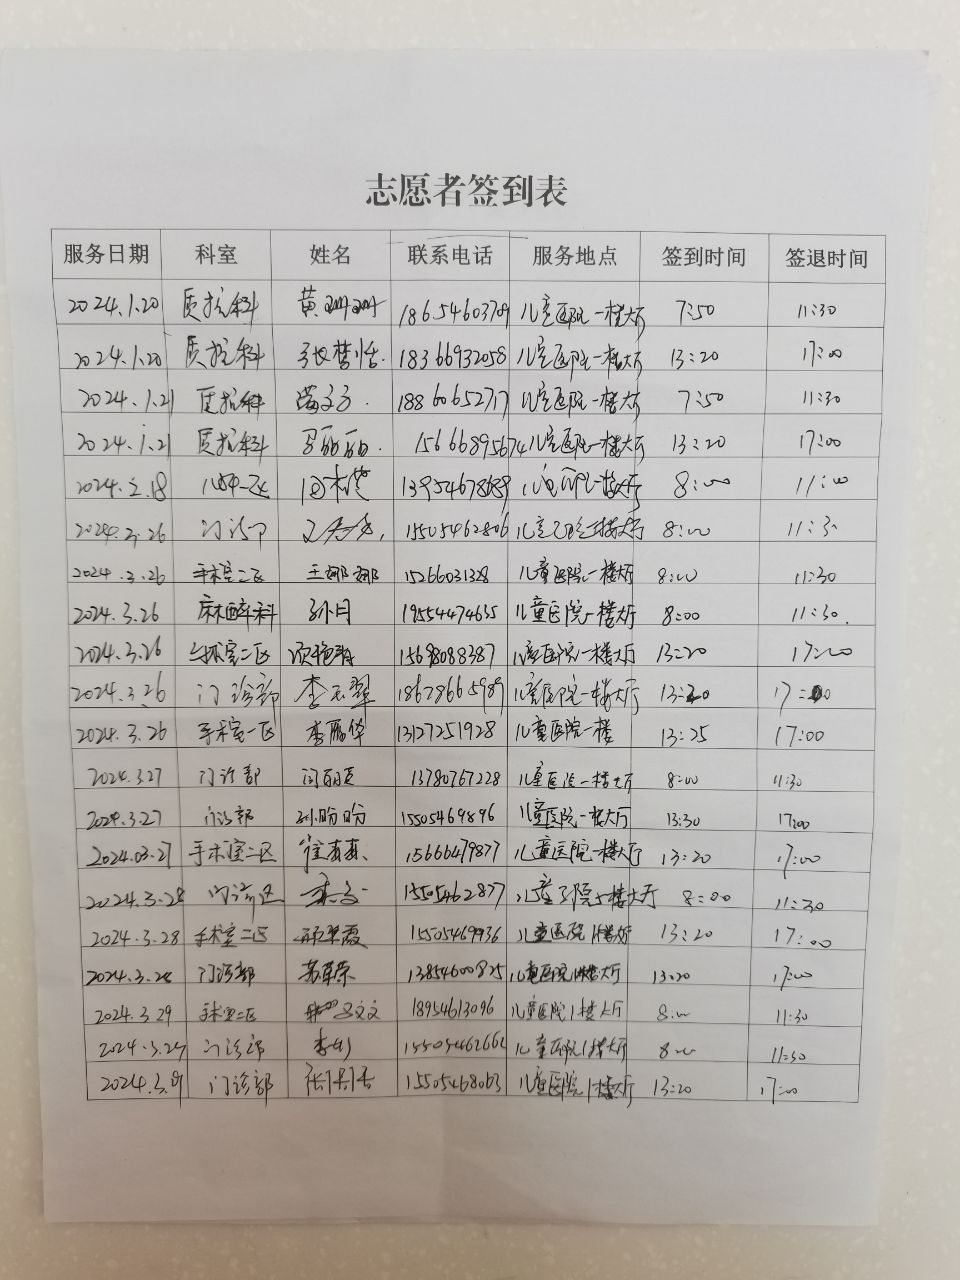 志愿者签到表
服务日期 科室 姓名 联系电话 服务地点 签到时间 签退时间
2024.1.20 质控科 黄珊珊 18654603709 儿童医院一楼大厅 7:50 11:30
2024.1.20 质控科 张梦恬 18366932058 儿童医院一楼大厅 13:20 17:00
2024.1.21 质控科 18860652717 儿童医院一楼大厅 7:50 11:30
2024.1.21 质控科 丽丽 15666895674 儿童医院一楼大厅 13:20 17:00
2024.2.18 儿科一区 13954678689 儿童医院一楼大厅 8:00 11:00
2024.3.26 门诊 1505462806 儿童医院一楼大厅 8:00 11:30
2024.3.26 手术室二区 王娜娜 15266031328 儿童医院一楼大厅 8:00 11:30
2024.3.26 麻醉科 孙月 19554474635 儿童医院一楼大厅 8:00 11:30
2024.3.26 手术室二区 15698088387 儿童医院一楼大厅 13:20 17:00
2024.3.26 门诊部 李玉翠 18678665989 儿童医院一楼大厅 13:20 17:00
2024.3.26 手术室一区 李丽华 13127251928 儿童医院一楼 13:25 17:00
2024.3.27 门诊部 闫丽夏 13780767228 儿童医院一楼大厅 8:00 11:30
2024.3.27 门诊部 孙盼盼 15505469896 儿童医院一楼大厅 13:30 17:00
2024.03.27 手术室二区 15666479877 儿童医院一楼大厅 13:20 17:00
2024.3.28 门诊 15505462877 儿童医院一楼大厅 8:00 11:30
2024.3.28 手术室二区 15505469936 儿童医院1楼大厅 13:20 17:00
2024.3.28 门诊部 苏草荣 13854600825 儿童医院1楼大厅 13:20 17:00
2024.3.29 手术室二区 吕文文 18954613096 儿童医院1楼大厅 8:00 11:30
2024.3.29 门诊部 李彬 15505462662 儿童医院1楼大厅 8:00 11:30
2024.3.29 门诊部 15505468063 儿童医院1楼大厅 13:20 17:00